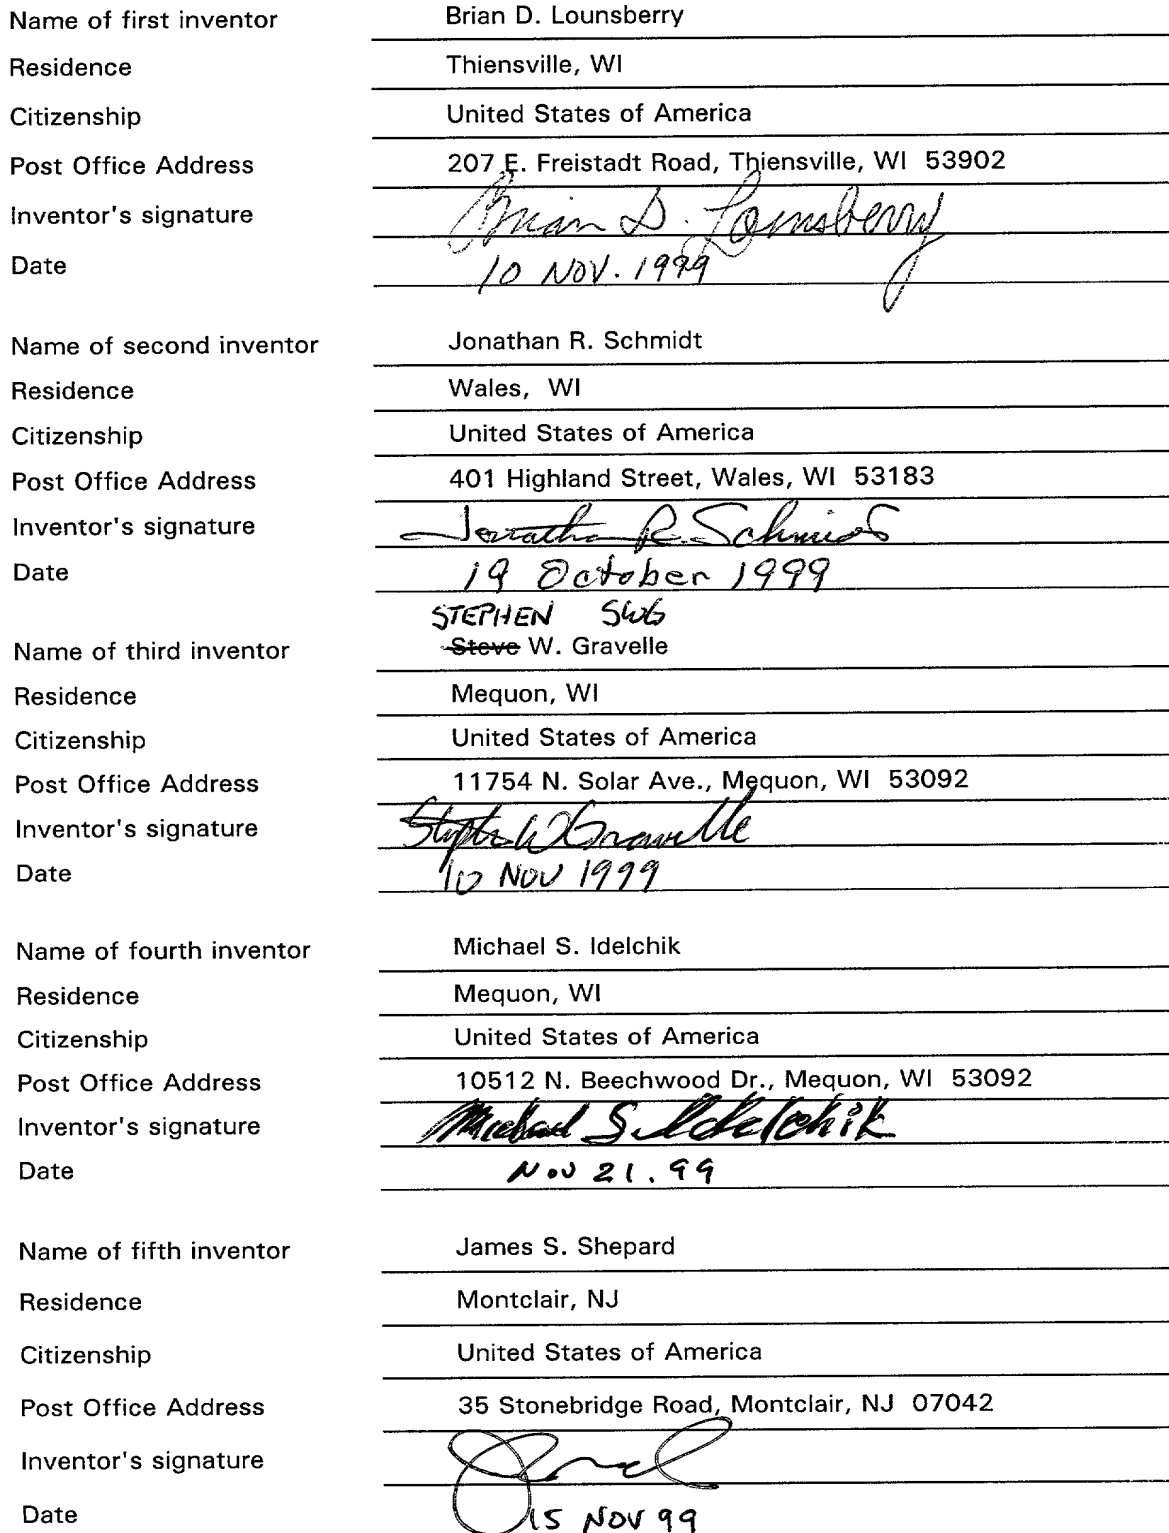 Name of first inventor Brian D. Lounsberry
Residence Thiensville, WI
Citizenship United States of America
Post Office Address 207 E. Freistadt Road, Thiensville, WI 53902
Inventor's signature Brian D. Lounsberry
Date 10 NOV. 1999
Name of second inventor Jonathan R. Schmidt
Residence Wales, WI
Citizenship United States of America
Post Office Address 401 Highland Street, Wales, WI 53183
Inventor's signature Jonathan R. Schmidt
Date 19 October 1999
STEPHEN SWG
Name of third inventor Steve W. Gravelle
Residence Mequon, WI
Citizenship United States of America
Post Office Address 11754 N. Solar Ave., Mequon, WI 53092
Inventor's signature Stephen W Gravelle
Date 10 NOV 1999
Name of fourth inventor Michael S. Idelchik
Residence Mequon, WI
Citizenship United States of America
Post Office Address 10512 N. Beechwood Dr., Mequon, WI 53092
Inventor's signature Michael S. Idelchik
Date Nov 21. 99
Name of fifth inventor James S. Shepard
Residence Montclair, NJ
Citizenship United States of America
Post Office Address 35 Stonebridge Road, Montclair, NJ 07042
Inventor's signature
Date 15 NOV 99